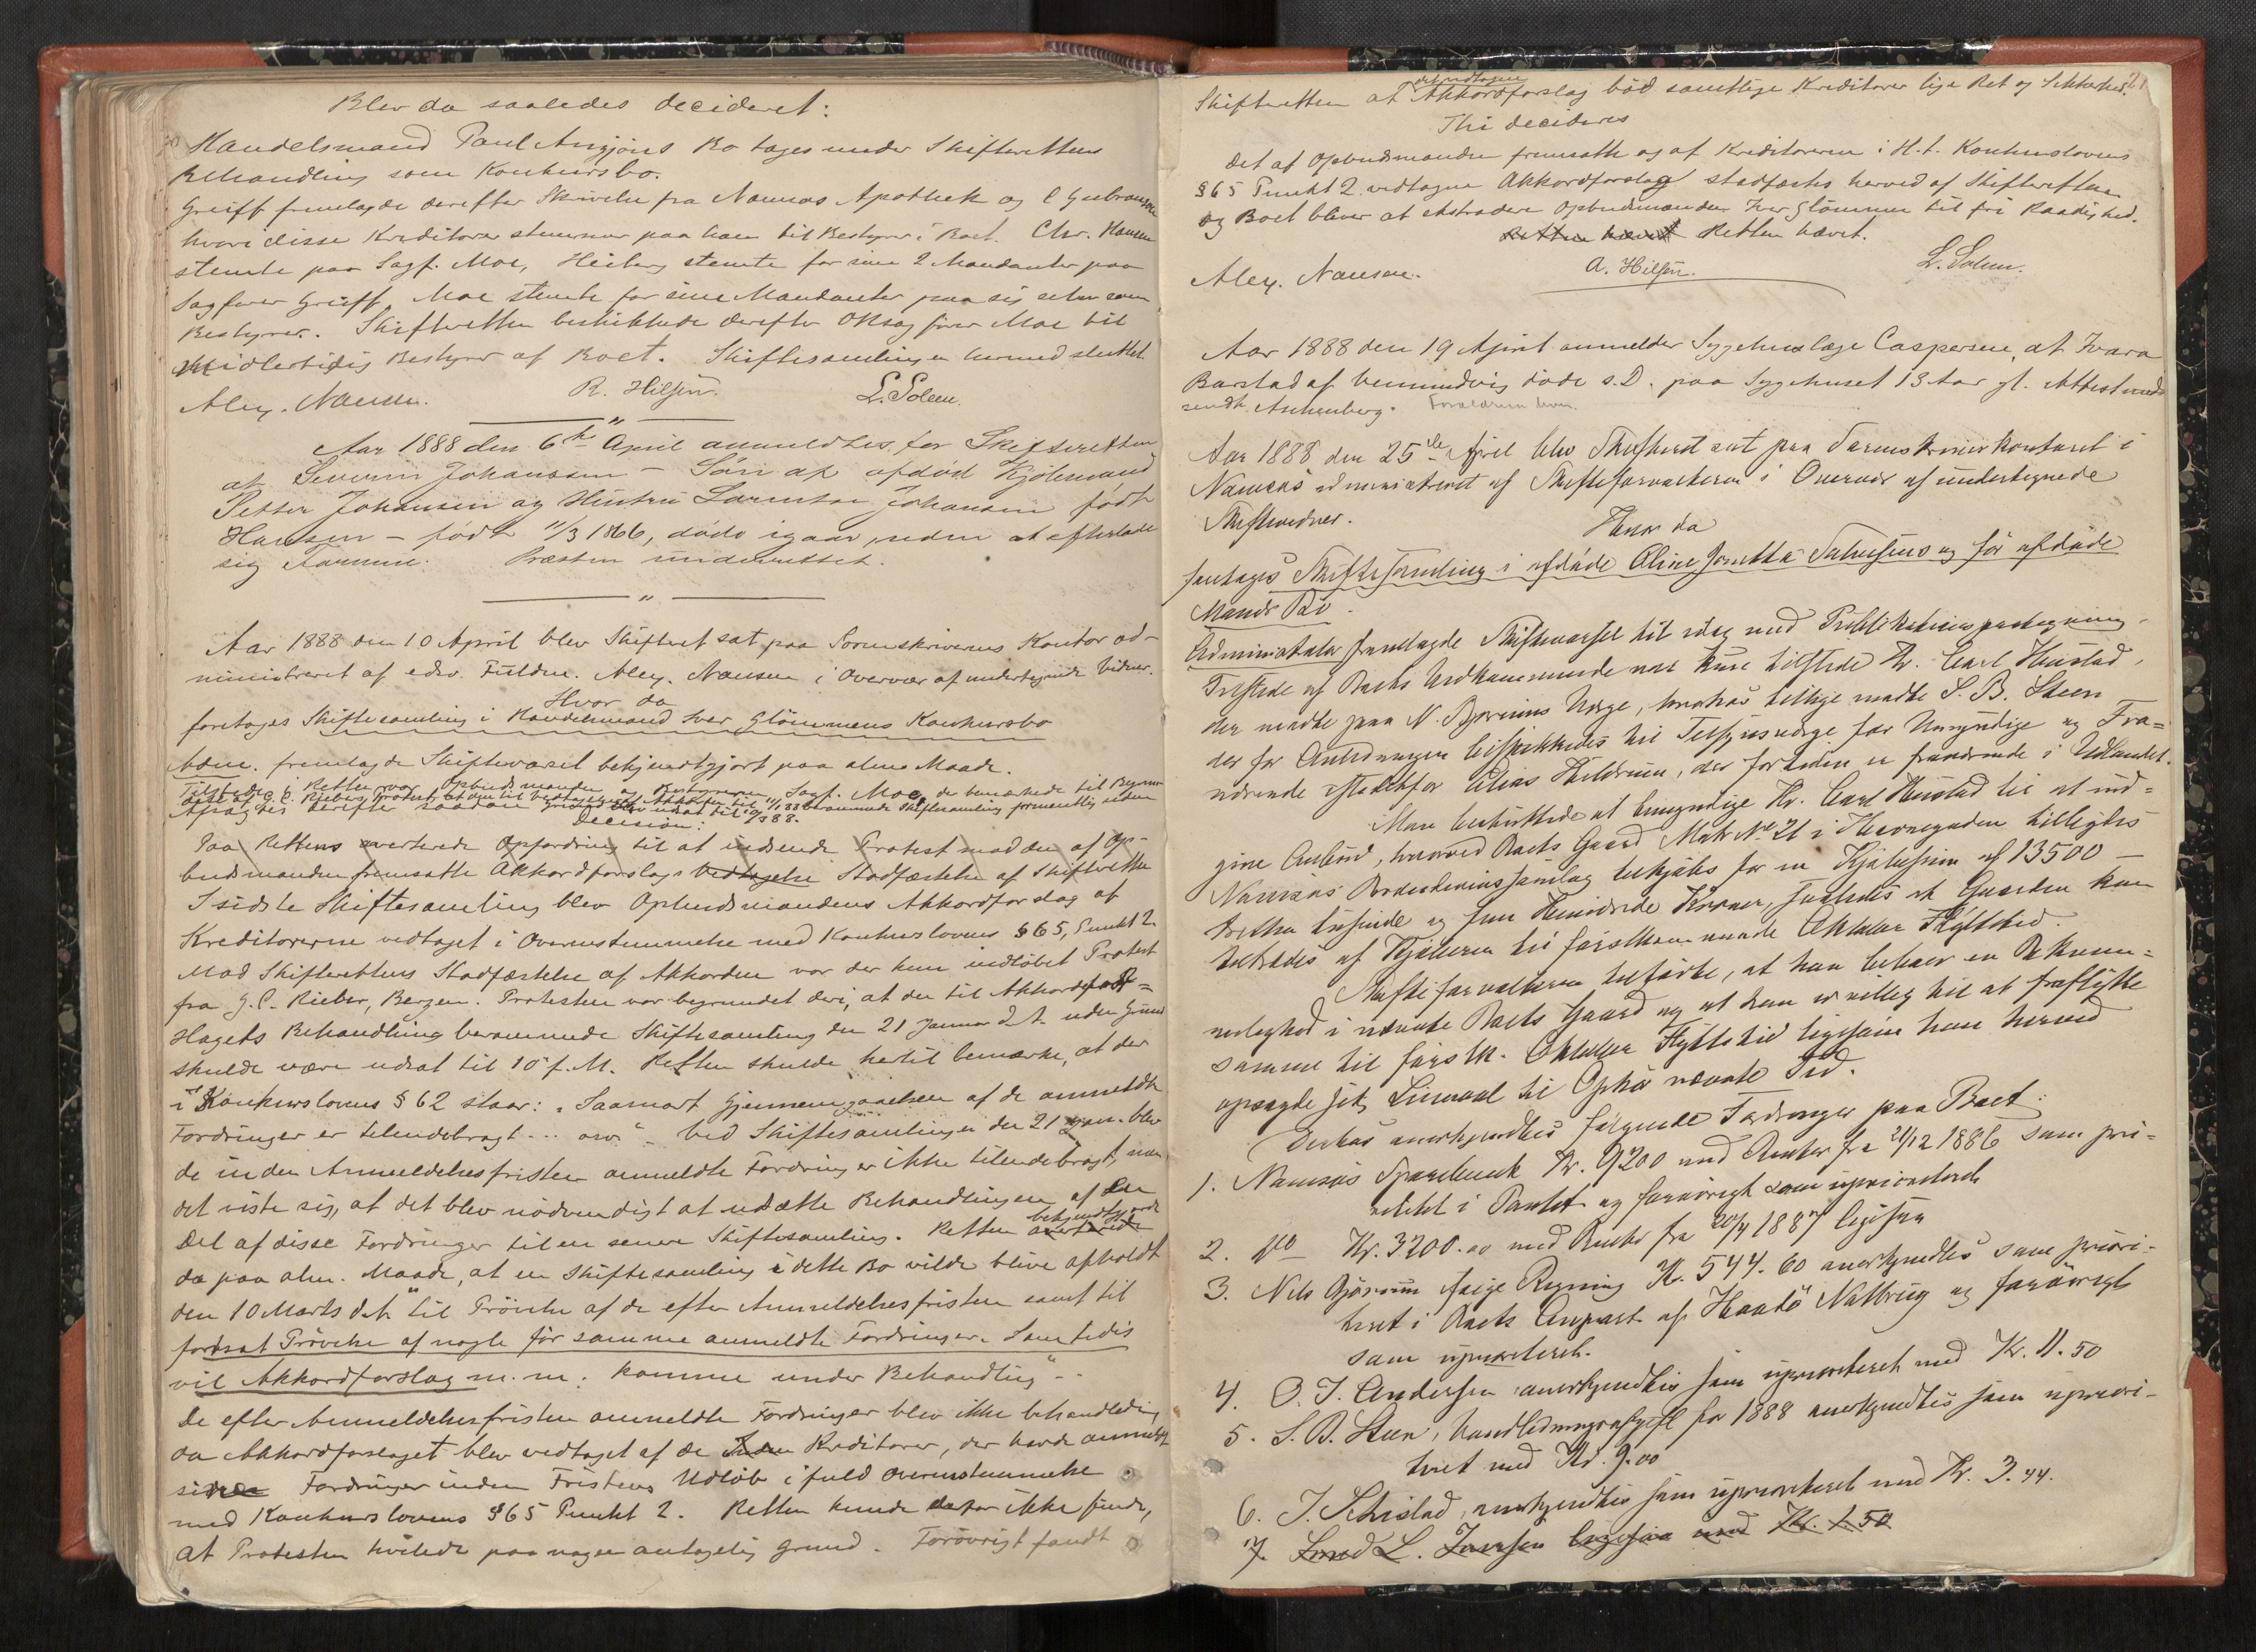 Blev da saaledes decideret:
Handelsmand Paul Angjøns Bo tages under Skifterettens
Behandling som Konkursbo.
Greiff fremlagde derefter Skrivelse fra Namsos Apothek og C Gulbransen
hvori disse Kreditorer stemmer paa ham til Bestyrer i Boet. Chr. Hansen
stemte paa Sagf. Moe, Heiberg stemte for sine 2 Mandanter paa
Sagfører Greiff, Moe stemte for sine Mandanter paa sig selv som
Bestyrer. Skifteretten beskikkede derefter ORsagfører Moe til
midlertidig Bestyrer af Boet. Skiftesamlingen hermed sluttet
Alex. Nansen. R. Hilsen. L. Solem.
Aar 1888 den 6te April anmeldtes for Skifteretten
at Severin Johansen – Søn af afdød
Petter Johansen og Hustru Johansen født
Hansen – født 11/3 1866, døde igaar, uden at efterlade
sig Formue. Præsten underrettet.
Aar 1888 den 10 April blev Skifteret sat paa Sorenskriverens Kontor ad-
ministreret af edsv. Fuldm. Alex. Nansen i Overvær af undertegnede Vidner.
Hvor da
foretoges Skiftesamling i Handelsmand Iver Glømmens Konkursbo
Adm. fremlagde Skiftevarsel bekjendtgjort paa alm. Maade.
Tilstede i Retten var Opbudsmanden og Bestyreren Sagf. Moe, der
Afsagdes derefter saadan
Decision:
Paa Rettens averterede Opfordring til at indsende Protest mod den af Op-
budsmanden fremsatte Akkordforslags Vedtagelse Stadfæstelse af Skifteretten
I sidste Skiftesamling blev Opbudsmandens Akkordforslag af
Kreditorerne vedtaget i Overensstemmelse med Konkurslovens § 65, Punkt 2.
Mod Skifterettens Stadfæstelse af Akkorden var der kun indløbet Protest
fra G.C. Rieber, Bergen. Protesten var begrundet deri, at den til Akkordfor=
slagets Behandling berammede Skiftesamling den 21 Januar d.A. uden Grund
skulde være udsat til 10 f. M. Retten skulde hertil bemærke, at der
i Konkurslovens § 62 staar: "Saasnart Gjennemgaaelsen af de anmeldte
Fordringer er tilendebragt ... osv." Ved Skiftesamlingen den 21 Jan. blev
de inden Anmeldelsesfristen anmeldte Fordringer ikke tilendebragt, men
det viste sig, at det blev nødvendigt at udsætte Behandlingen af en
Del af disse Fordringer til en senere Skiftesamling. Retten bekjendtgjorde averterede
da paa alm. Maade, at en Skiftesamling i dette Bo vilde blive afholdt
den 10 Marts d.A. "til Prøvelse af de efter Anmeldelsesfristen samt til
fortsat Prøvelse af nogle før samme anmeldte Fordringer. Samtidig
vil Akkordforslag m. m. komme under Behandling".
De efter Anmeldelsesfristen anmeldte Fordringer blev ikke behandlede,
da Akkordforslaget blev vedtaget af de Kreditorer, der havde anmeldt
sine Fordringer inden Fristens Udløb i fuld Overensstemmelse
med Konkurslovens § 65 Punkt 2. Retten kunde derfor ikke finde,
at Protesten hvilede paa nogen antagelig Grund. Forøvrigt fandt
Skifteretten at det vedtagne Akkordforslag bød samtlige Kreditorer lige Ret og Sikkerhed.
Thi decideres
Det af Opbudsmanden fremsatte og af Kreditorerne i H.t. Konkurslovens
§ 65 Punkt 2 vedtagne Akkordforslag stadfæstes herved af Skifteretten
og Boet bliver at extradere Opbudsmanden Iver Glømmen til fri Raadighed.
Retten hævet Retten hævet.
Alex. Nansen. A. Hilsen. L. Solem.
Aar 1888 den 19 April anmelder Sygehuslæge Caspersen, at Ivara
Barstad af Vemundvig døde s.D. paa Sygehuset 13 Aar gl. Attest
sendt Forældrene lever.
Aar 1888 den 25de April blev Skifteret sat paa Sorenskriverkontoret i
Namsos administreret af Skifteforvalteren i Overvær af undertegnede
Skiftevidner.
Hvor da
foretoges Skiftesamling i afdøde Oline Jonetta Salvesens og før afdøde
Mands Bo.
Administrator fremlagde Skiftevarsel til idag med Publikationspaategning.
Tilstede af Boets Vedkommende var kun tilstede Hr. Carl Hustad,
der mødte paa N. Gjørvims Vegne, hvorhos tillige mødte S. B. Steen
der for Anledningen beskikkedes til Tilsynsværge for Umyndige og Fra=
værende istedetfor Elias Hildrum, der for tiden er fraværende i Udlandet.
Man besluttede at bemyndige Hr. Carl Hustad til at ind=
give Anbud, hvorved Boets Gaard Matr. No 21 i Havnegaden tilbydes
Namsos Brændevinssamlag tilkjøbs for en Kjøbesum af 13500 –
tretten tusinde og fem Hundrede Kroner, saaledes at Gaarden kan
tiltrædes af Kjøberen til førstkommende Oktober Flyttetid.
Skifteforvalteren tilførte, at han beboer en Bekvem=
melighed i nævnte Boets Gaard og at han er villig til at fraflytte
samme til førstk. Oktober Flyttetid ligesom han herved
opsagde sit Leiemaal til Ophør nævnte Tid.
Derhos anerkjendtes følgende Fordringer paa Boet:
1. Namsos Sparebank Kr. 9200 med Renter fra 21/12 1886 som pri=
oritet i Pantet og forøvrigt som uprioriteret
2. Do Kr. 3200.00 med Renter fra 20/4 1887 ligesaa
3. Nils Gjørvim ifølge Regning Kr. 544.60 anerkjendtes som priori-
teret i Boets Anpart af Notbrug og forøvrigt
som uprioriteret.
4. O. J. Andersen anerkjendtes som uprioriteret med Kr. 11.50
5. S. B. Steen, for 1888 anerkjendtes som upriori-
teret med Kr. 9.00
6. J. anerkjendtes som uprioriteret med Kr. 3.44.
7. L. Jensen ligesaa med Kr. 1.50